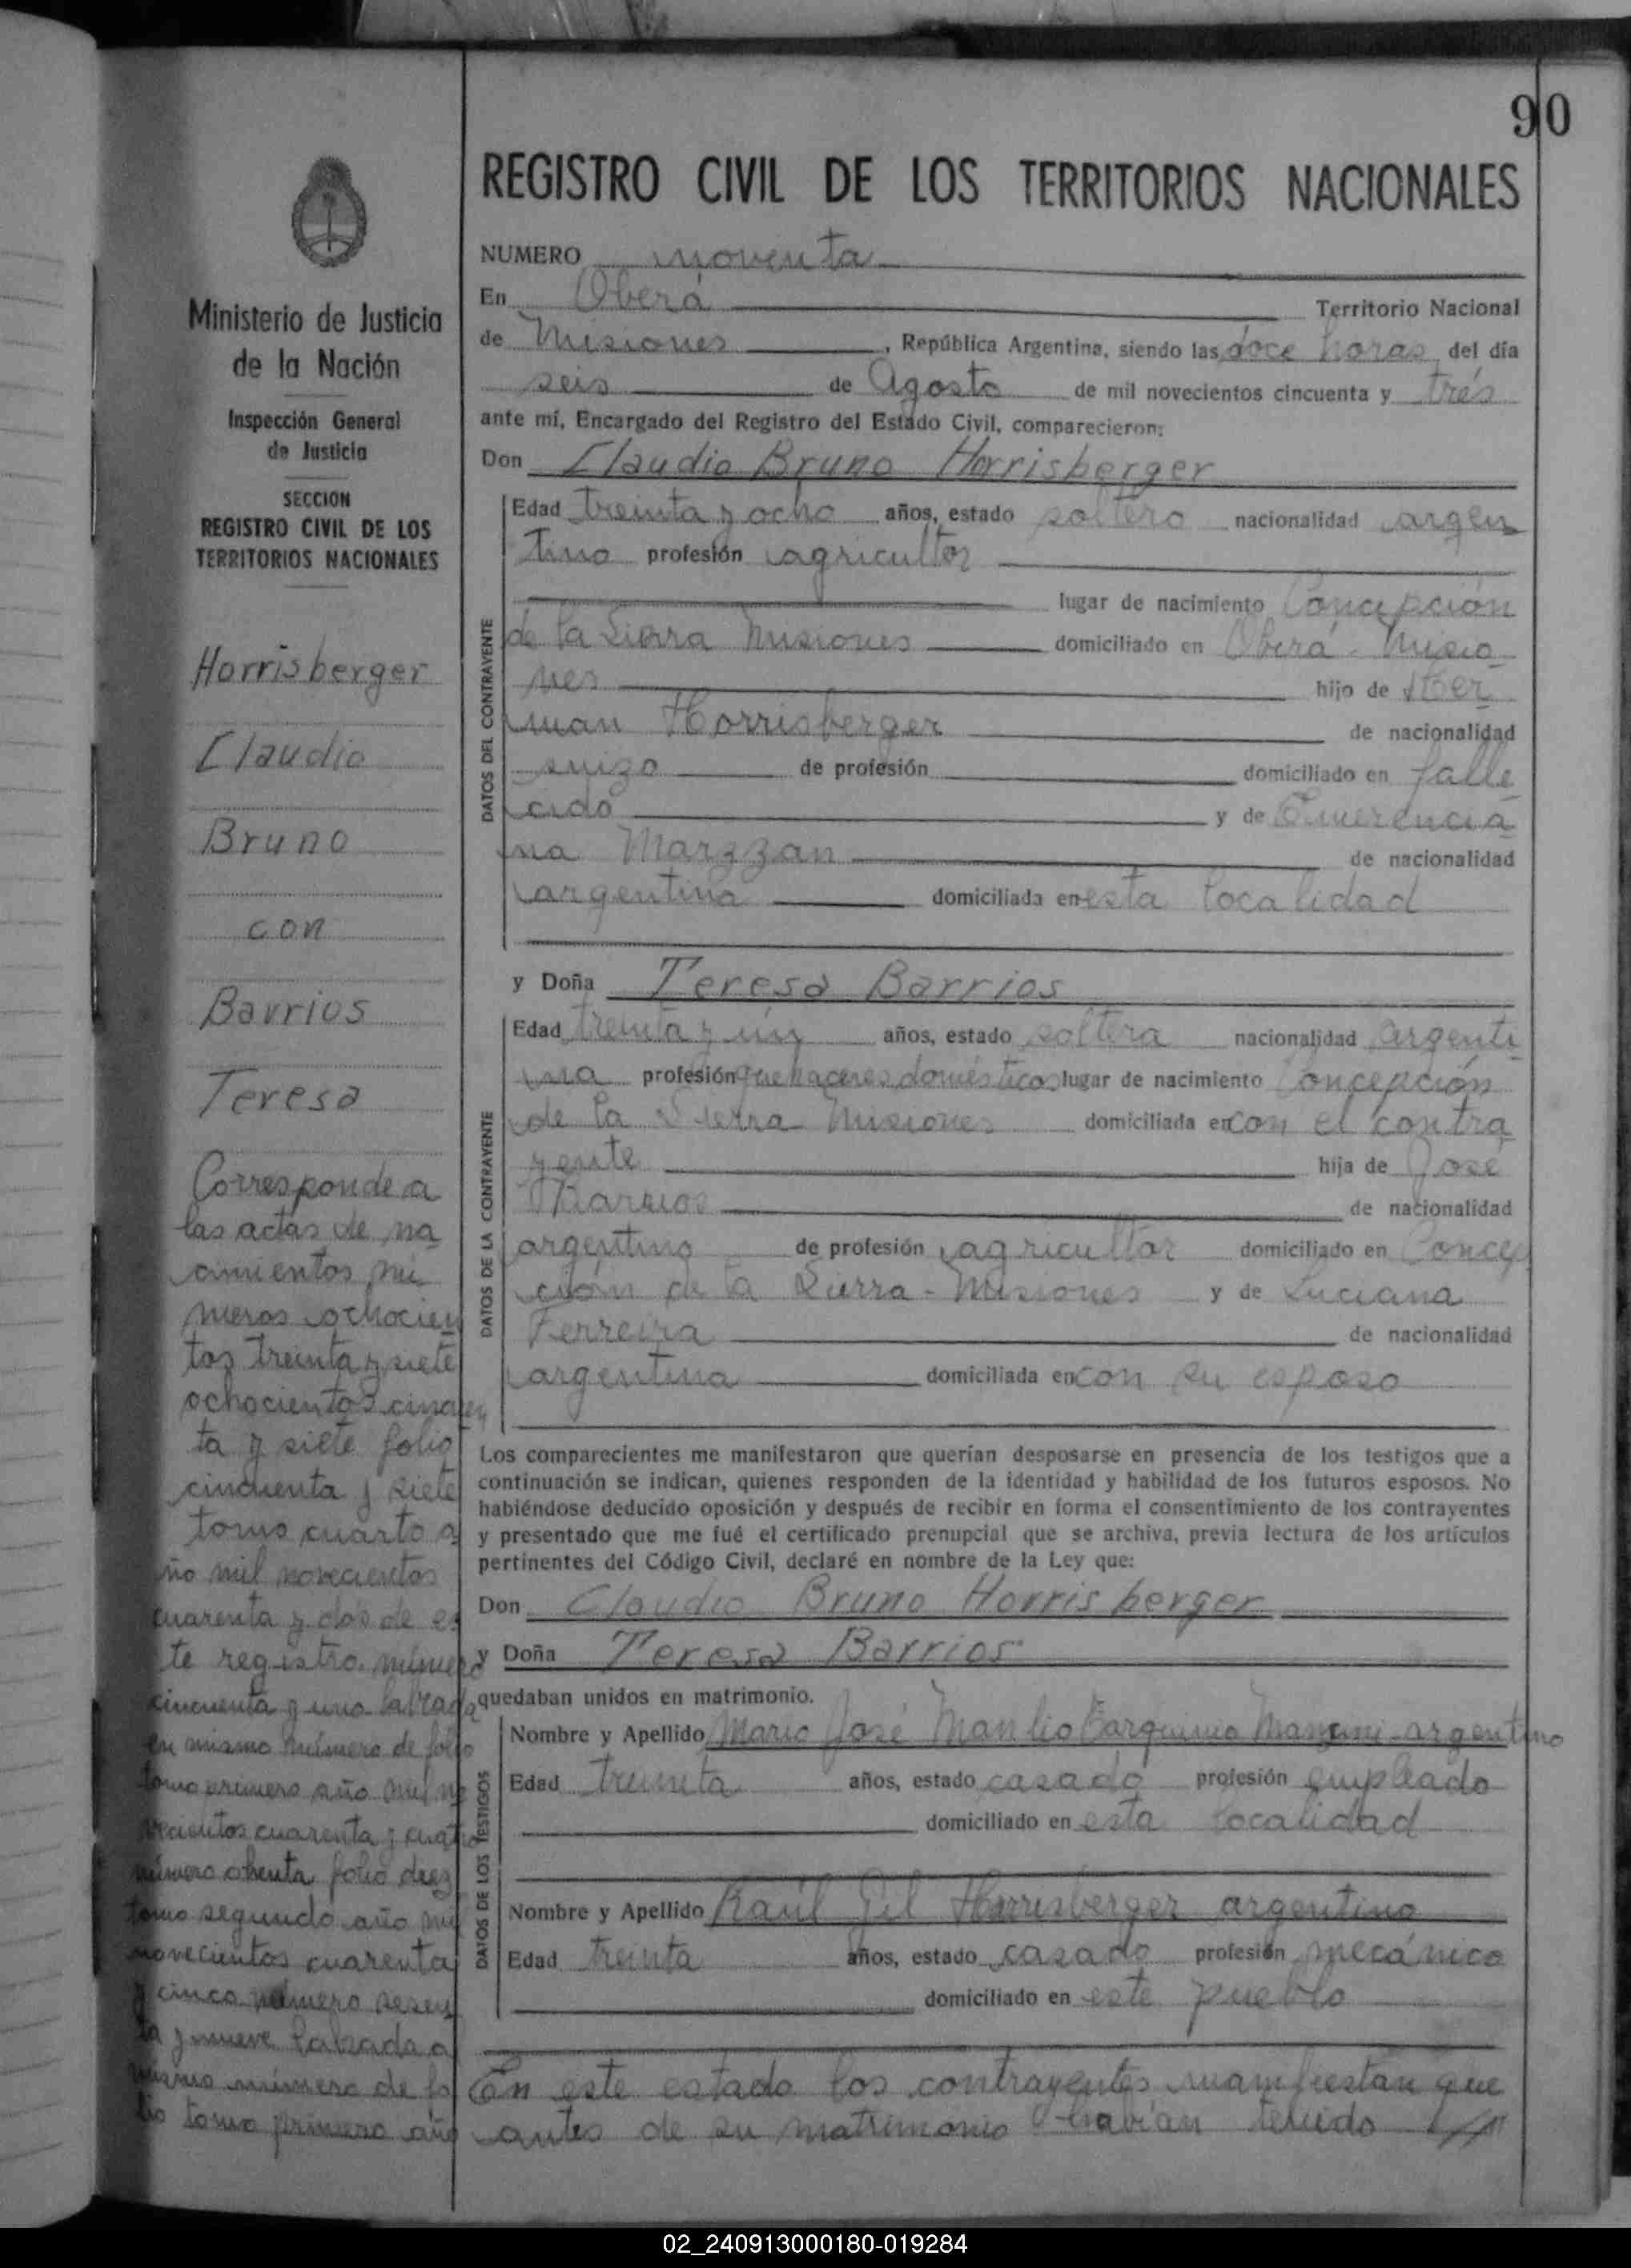 90
REGISTRO CIVIL DE LOS TERRITORIOS NACIONALES
NUMERO noventa
En Oberá Territorio Nacional
de Misiones, República Argentina, siendo las doce horas del día
seis de Agosto de mil novecientos cincuenta y trés
ante mí, Encargado del Registro del Estado Civil, comparecieron:
Don Claudio Bruno Horrisberger
DATOS DEL CONTRAYENTE
Edad treinta y ocho años, estado soltero nacionalidad argen
tino profesión agricultor
lugar de nacimiento Concepción
de la Sierra Misiones domiciliado en Oberá - Misio
nes hijo de Her
man Horrisberger de nacionalidad
suizo de profesión domiciliado en falle
cido y de Emerencia
na Marzzan de nacionalidad
argentina domiciliada en esta localidad
y Doña Teresa Barrios
DATOS DE LA CONTRAYENTE
Edad treinta y un años, estado soltera nacionalidad argenti
na profesión quehaceres domésticos lugar de nacimiento Concepción
de la Sierra Misiones domiciliada en con el contra
yente hija de José
Barrios de nacionalidad
argentino de profesión agricultor domiciliado en Concep
ción de la Sierra - Misiones y de Luciana
Ferreira de nacionalidad
argentina domiciliada en con su esposo
Los comparecientes me manifestaron que querían desposarse en presencia de los testigos que a
continuación se indican, quienes responden de la identidad y habilidad de los futuros esposos. No
habiéndose deducido oposición y después de recibir en forma el consentimiento de los contrayentes
y presentado que me fué el certificado prenupcial que se archiva, previa lectura de los artículos
pertinentes del Código Civil, declaré en nombre de la Ley que:
Don Claudio Bruno Horrisberger
y Doña Teresa Barrios
quedaban unidos en matrimonio.
DATOS DE LOS TESTIGOS
Nombre y Apellido Mario José Manlio Tarquinio argentino
Edad treinta años, estado casado profesión empleado
domiciliado en esta localidad
Nombre y Apellido Raúl Gil Horrisberger argentino
Edad treinta años, estado casado profesión mecánico
domiciliado en este pueblo
En este estado los contrayentes manifiestan que
antes de su matrimonio habían tenido
Ministerio de Justicia
de la Nación
Inspección General
de Justicia
SECCION
REGISTRO CIVIL DE LOS
TERRITORIOS NACIONALES
Horrisberger
Claudio
Bruno
con
Barrios
Teresa
Corresponde a
las actas de na
cimientos nú
meros ochocien
tos treinta y siete
ochocientos cincuen
ta y siete folio
cincuenta y siete
tomo cuarto a
ño mil novecientos
cuarenta y dos de es
te registro. número
cincuenta y uno labrada
en mismo número de folio
tomo primero año mil no
vecientos cuarenta y cuatro
número ochenta folio diez
tomo segundo año mil
novecientos cuarenta
y cinco número sesen
ta y nueve labrada a
mismo número de fo
lio tomo primero año
02_240913000180-019284